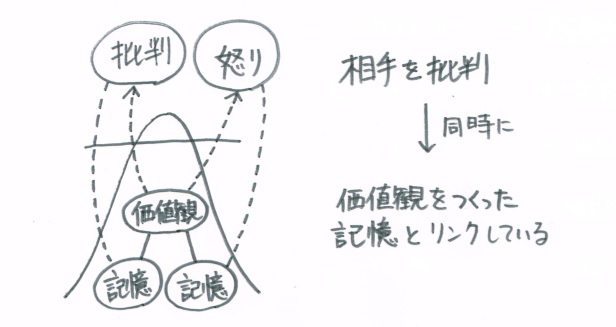 批判
怒り
価値観
記憶
記憶
相手を批判
同時に
価値観をつくった
記憶とリンクしている